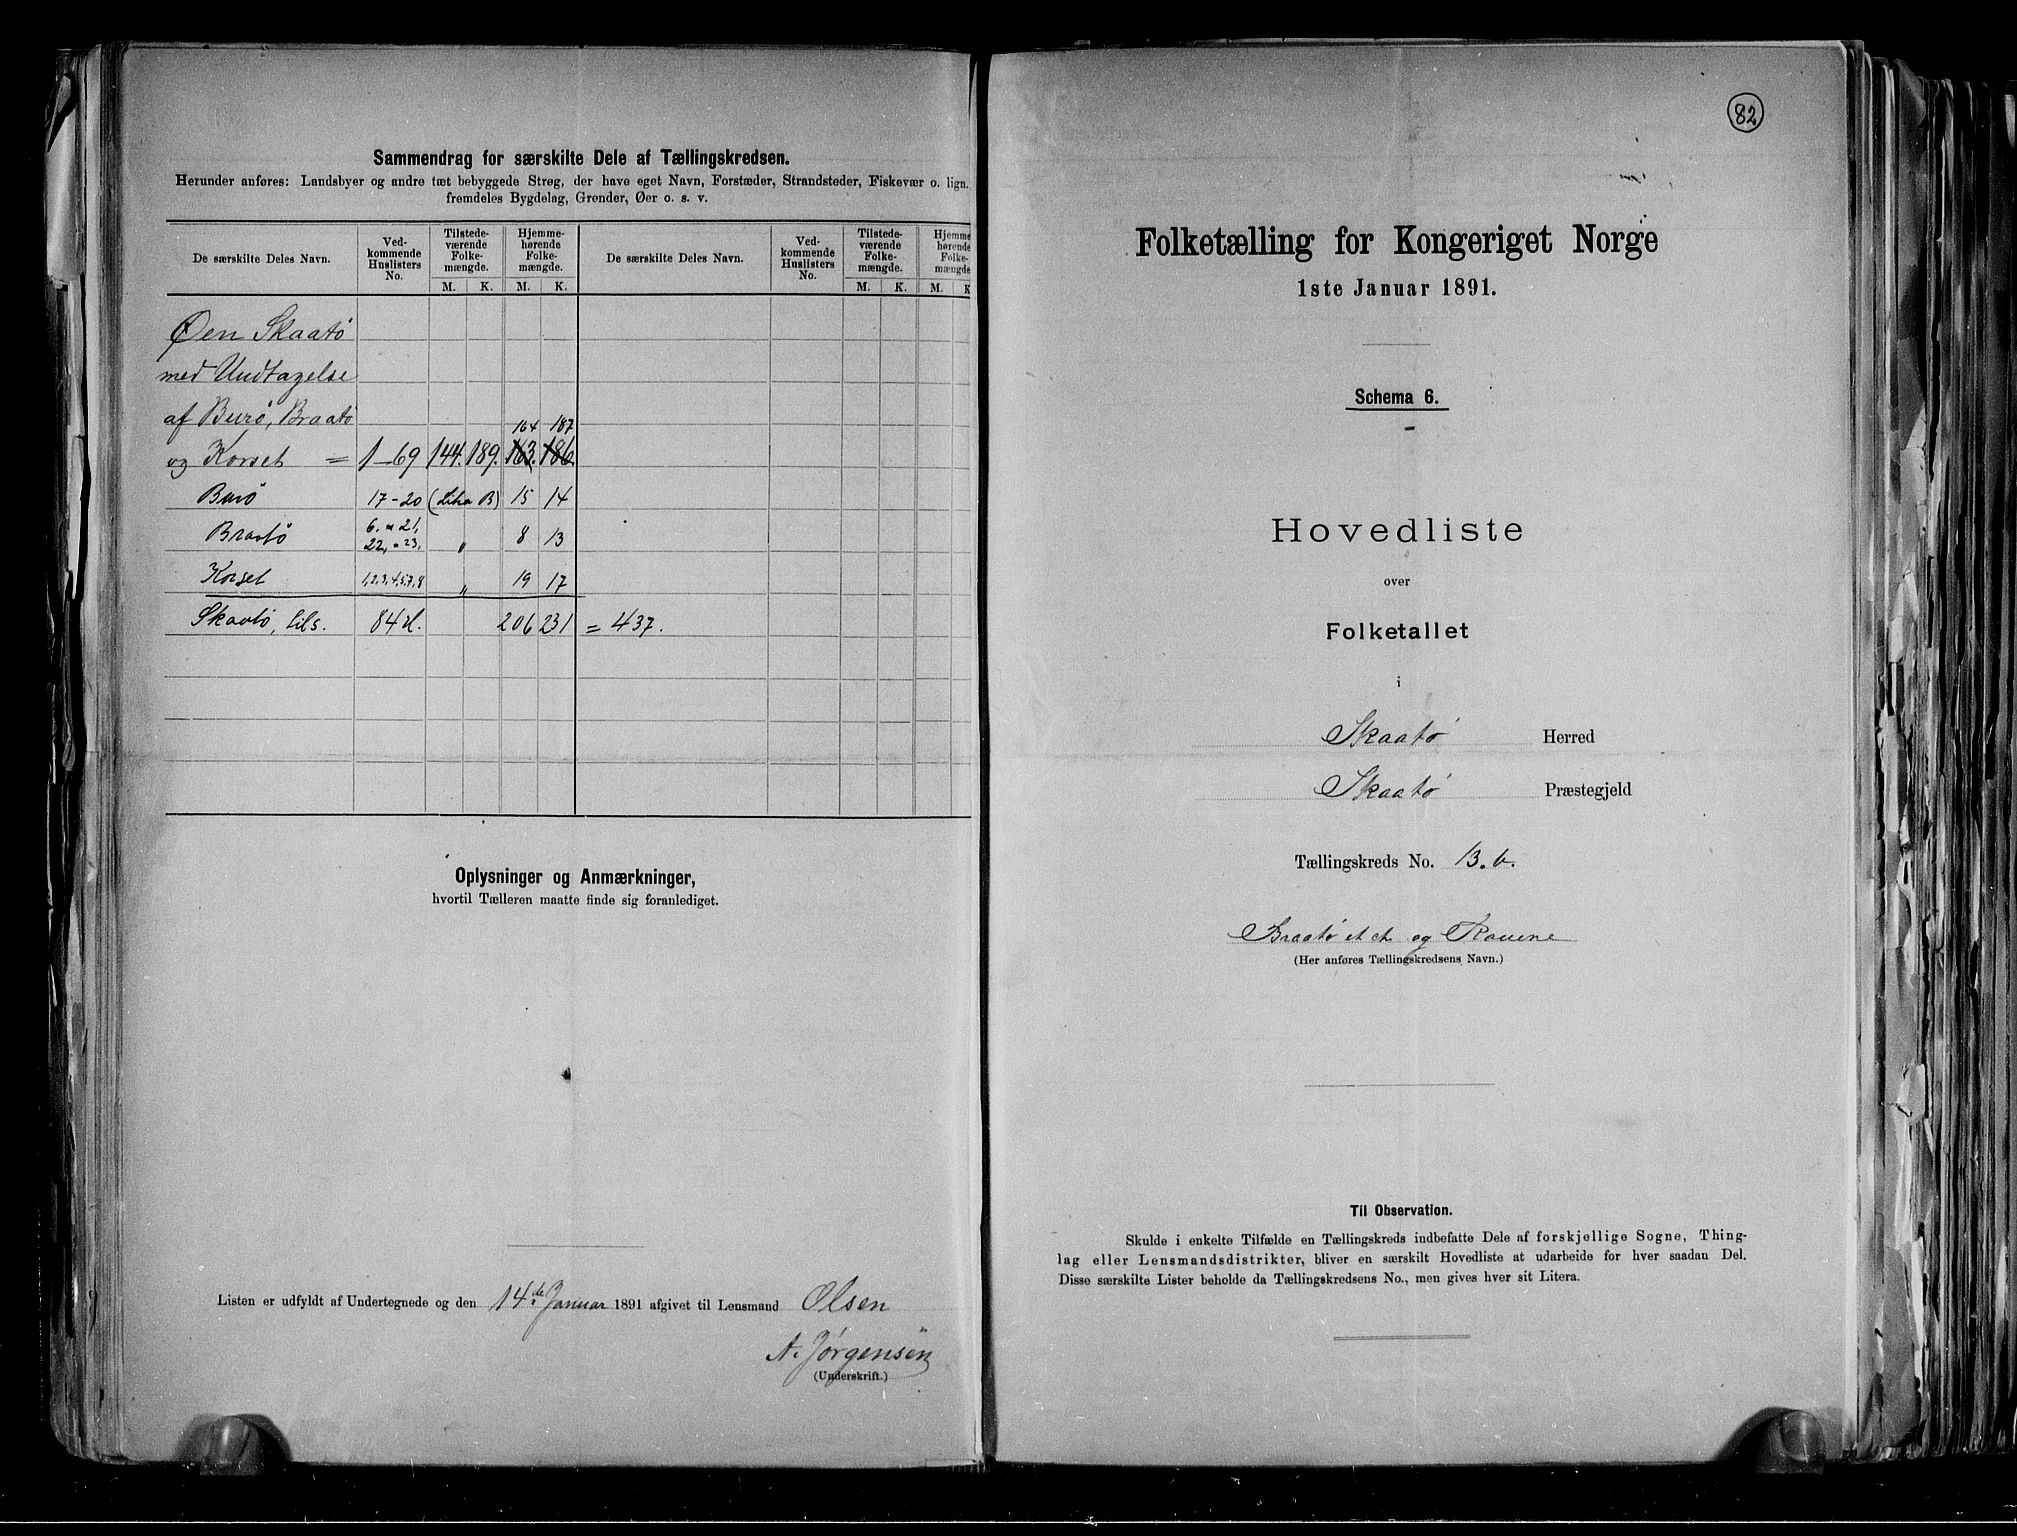 Sammendrag for særskilte Dele af Tællingskredsen.
Herunder anføres: Landsbyer og andre tæt bebyggede Strøg, der have eget Navn, Forstæder, Strandsteder, Fiskevær o. lign.
fremdeles Bygdelag, Grender, Øer o. s. v.
De særskilte Deles Navn. Ved-kommende Huslisters No. Tilstede-værende Folke-mængde. Hjemme-hørende Folke-mængde. De særskilte Deles Navn. Ved-kommende Huslisters No. Tilstede-værende Folke-mængde. Hjemme-hørende Folke-mængde
M. K. M. K. M. K. M. K
Øen Skaatö
med Undtagelse
af Burö, Braatö 164 187
og Korset = 1-69 144. 189. 163. 186.
Burö 17-20 (Litra B) 15 14
Braatö 6. " 21, 22, " 23, " 8 13
Korset 1,2,3,4,5,7,8 " 19 17
Skaatö, tils. 84 206 231 = 437.
Oplysninger og Anmærkninger,
hvortil Tælleren maatte finde sig foranlediget.
Listen er udfyldt af Undertegnede og den 14de Januar 1891 afgivet til Lensmand Olsen
A. Jörgensen
(Underskrift.)
82
Folketælling for Kongeriget Norge
1ste Januar 1891.
Schema 6.
Hovedliste
over
Folketallet
i
Skaatö Herred
Skaatö Præstegjeld
Tællingskreds No. 13. b.
Braatö et ct og
(Her anføres Tællingskredsens Navn.)
Til Observation.
Skulde i enkelte Tilfælde en Tællingskreds indbefatte Dele af forskjellige Sogne, Thing-
lag eller Lensmandsdistrikter, bliver en særskilt Hovedliste at udarbeide for hver saadan Del.
Disse særskilte Lister beholde da Tællingskredsens No., men gives hver sit Litera.